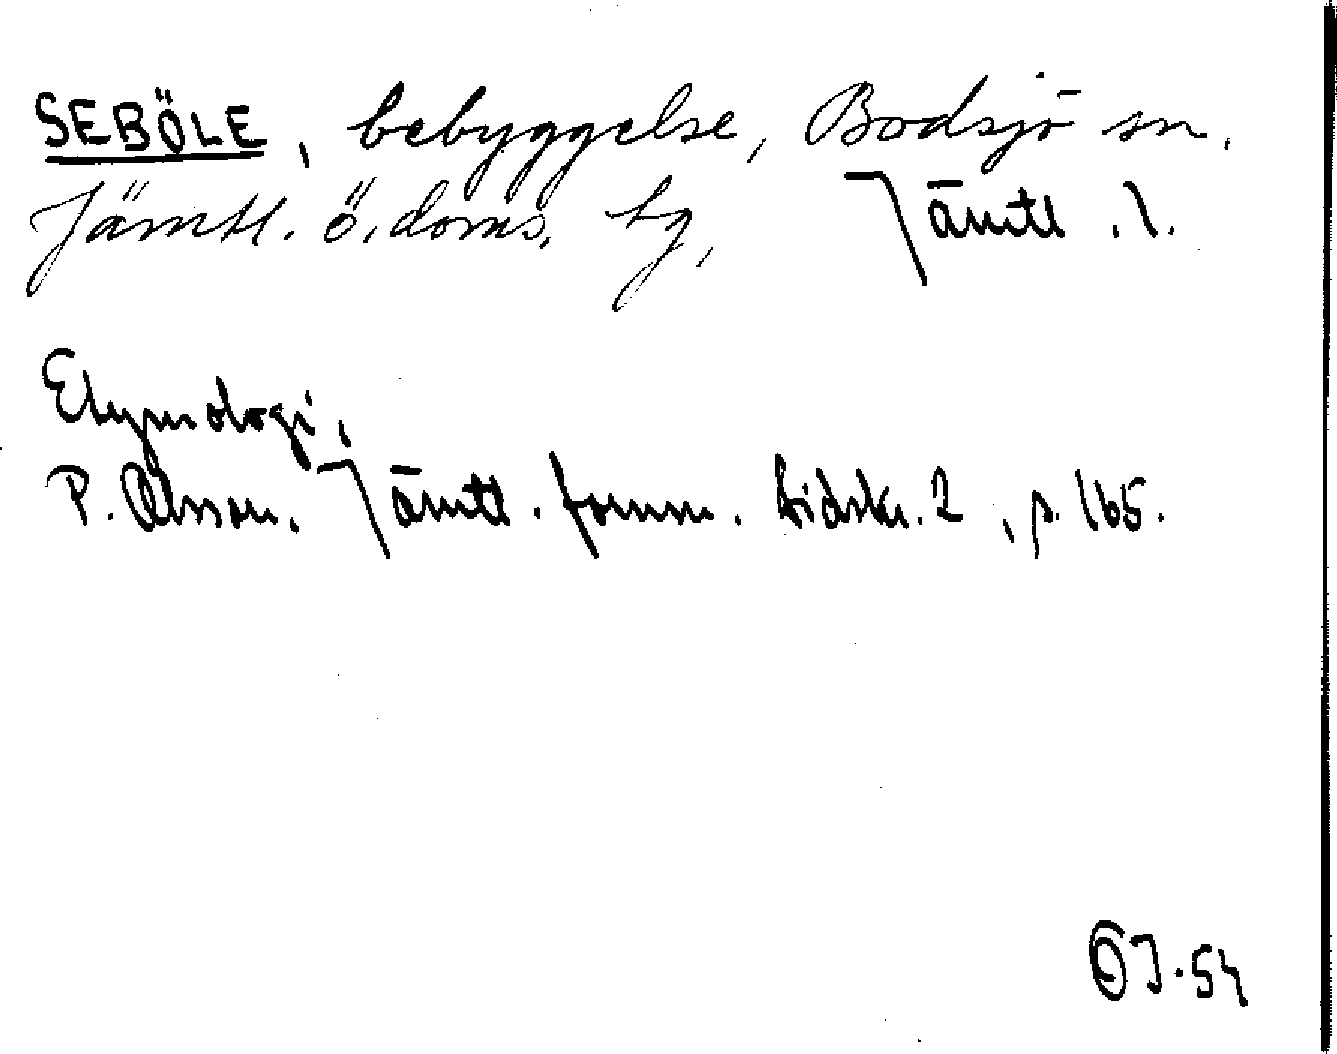 SEBÖLE, bebyggelse, Bodsjö sn,
Jämtl. ö. doms. tg, Jämtl. l.
Etymologi,
P. Olsson. Jämtl. fornm. tidskr. 2, s. 165.
ÖJ.54